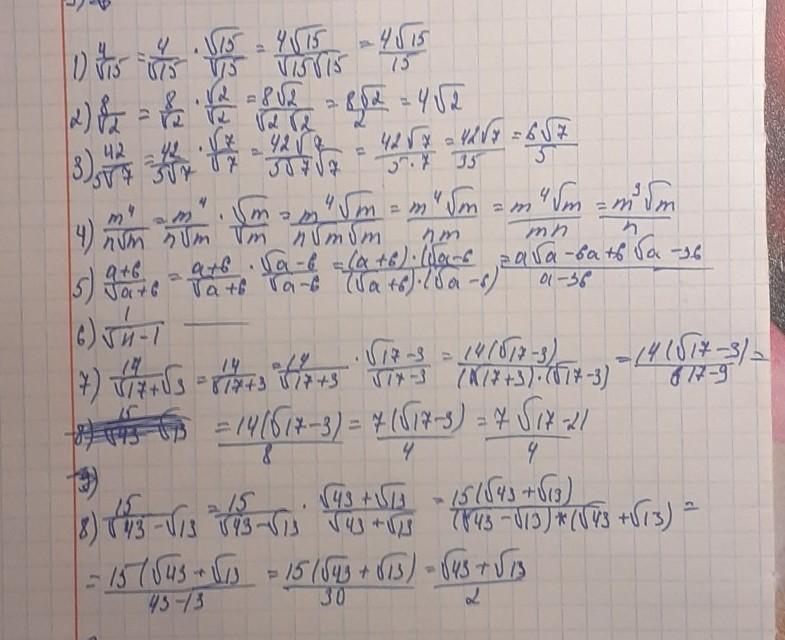 1) 4/√15 = 4/√15 · √15/√15 = 4√15/√15√15 = 4√15/15
2) 8/√2 = 8/√2 · √2/√2 = 8√2/√2√2 = 8√2/2 = 4√2
3) 42/5√7 = 42/5√7 · √7/√7 = 42√7/5√7√7 = 42√7/5·7 = 42√7/35 = 6√7/5
4) m⁴/n√m = m⁴/n√m · √m/√m = m⁴√m/n√m√m = m⁴√m/nm = m⁴√m/mn = m³√m/n
5) a+6/√a+6 = a+6/√a+6 · √a-6/√a-6 = (a+6)·(√a-6/(√a+6)·(√a-6) = a√a-6a+6√a-36/a-36
6) 1/√n-1
7) 14/√17+√3 = 14/√17+3 = 14/√17+3 · √17-3/√17-3 = 14(√17-3)/(√17+3)·(√17-3) = 14(√17-3)/17-9 =
= 14(√17-3)/8 = 7(√17-3)/4 = 7√17-21/4
8) 15/√43-√13 = 15/√43-√13 · √43+√13/√43+√13 = 15(√43+√13)/(√43-√13)*(√43+√13) =
= 15(√43+√13/43-13 = 15(√43+√13)/30 = √43+√13/2